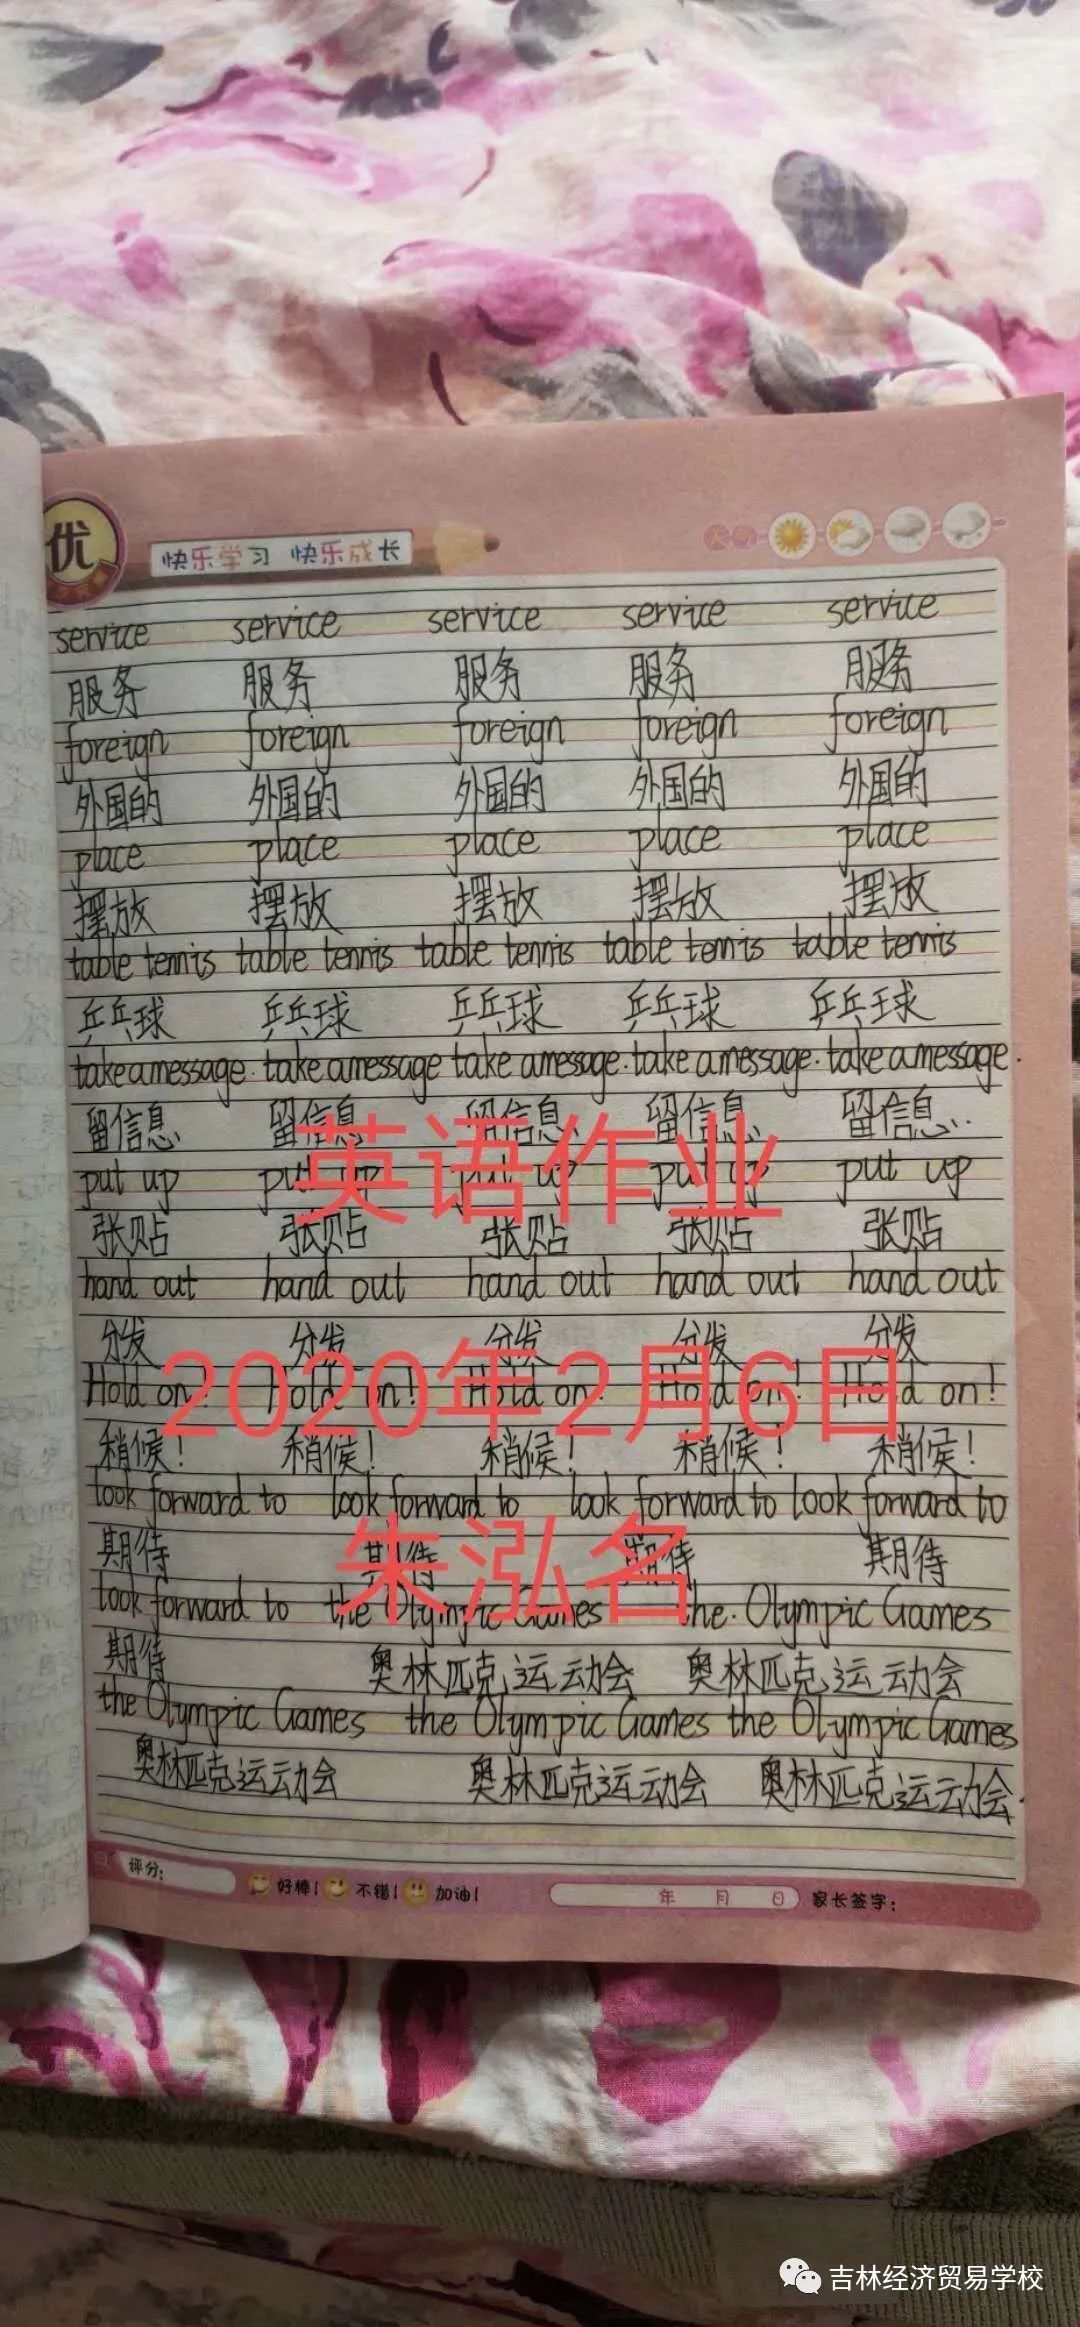 优
快乐学习 快乐成长
天气
service service service service service
服务 服务 服务 服务 服务
foreign foreign foreign foreign foreign
外国的 外国的 外国的 外国的 外国的
place place place place place
摆放 摆放 摆放 摆放 摆放
table tennis table tennis table tennis table tennis table tennis
乒乓球 乒乓球 乒乓球 乒乓球 乒乓球
take a message. take a message take a message. take a message. take a message.
留信息 留信息 留信息 留信息 留信息
put up put up put up put up put up
张贴 张贴 张贴 张贴 张贴
hand out hand out hand out hand out hand out
分发 分发 分发 分发 分发
Hold on! Hold on! Hold on! Hold on! Hold on!
稍候! 稍候! 稍候! 稍候! 稍候!
look forward to look forward to look forward to look forward to
期待 期待 期待 期待
look forward to the Olympic Games the Olympic Games
期待 奥林匹克运动会 奥林匹克运动会
the Olympic Games the Olympic Games the Olympic Games
奥林匹克运动会 奥林匹克运动会 奥林匹克运动会
英语作业
2020年2月6日
朱泓名
评分: 好棒! 不错! 加油! 年 月 日 家长签字:
吉林经济贸易学校